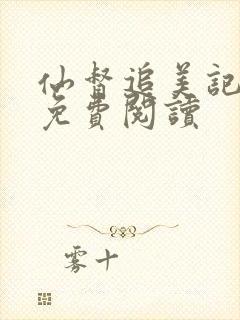 仙督追美記
免費閱讀
雾十